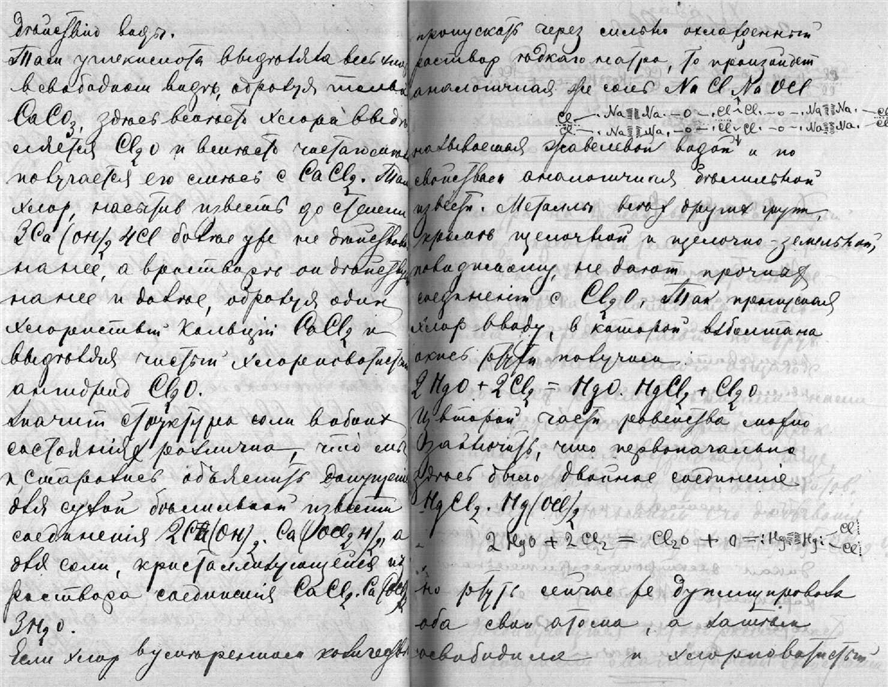 дѣйствію воды.
Тамъ углекислота выдѣляла весь хлоръ
въ свободномъ видѣ, образуя только
CaCO₃, здѣсь вмѣсто хлора выдѣ-
ляется Cl₂O и вмѣсто чистаго
получается его смѣсь съ CaCl₂. Тамъ
хлоръ, насытивъ известь до степени
3Ca(OH)₂4Cl болѣе уже не дѣйствовалъ
на нее, а въ растворѣ онъ дѣйствуетъ
на нее и далѣе, образуя одинъ
хлористый кальцій CaCl₂ и
выдѣляя чистый хлорноватистый
ангидридъ Cl₂O.
Значитъ структура соли въ обоихъ
состояніяхъ различна, что мы
и старались объяснить допущеніемъ
для сухой бѣлильной извести
соединенія 2Ca(OH)₂. Ca(OCl₂H)₂, а
для соли, кристаллизующейся изъ
раствора соединенія CaCl₂.Ca(OCl)₂
3H₂O.
Если хлоръ въ количествѣ
пропускать черезъ сильно охлажденный
растворъ ѣдкаго натра, то произойдетъ
аналогичная же соль NaCl NaOCl
Cl Na Na – O – Cl Cl – O – Na Na Cl
Cl Na Na – O – Cl Cl – O – Na Na Cl
называемая жавелевой водой и по
свойствамъ аналогичная бѣлильной
извести. Металлы всѣхъ другихъ группъ,
кромѣ щелочной и щелочно-земельной,
повидимому, не даютъ прочныхъ
соединеній съ Cl₂O. Такъ пропуская
хлоръ въ воду, въ которой взболтана
окись ртути получимъ:
2HgO + 2Cl₂ = HgO. HgCl₂ + Cl₂O
Изъ второй части равенства можно
заключить, что первоначально
здѣсь было двойное соединеніе
HgCl₂. Hg(OCl)₂
2HgO + 2Cl₂ = Cl₂O + O = Hg Hg Cl Cl
но ртуть сейчасъ же
оба свои атома, а затѣмъ
освободила и хлорноватистый